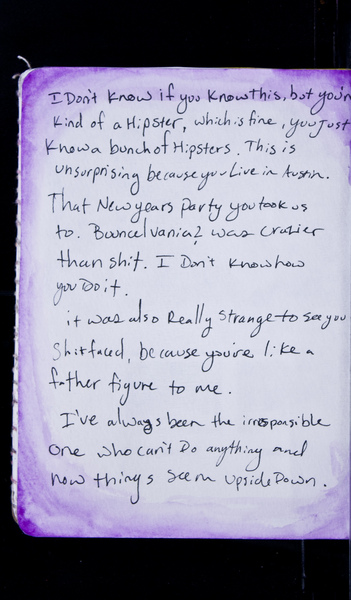 I Don't know if you know this, but you'r
kind of a Hipster, which is fine, you Just
know a bunch of Hipsters. This is
unsurprising because you Live in Austin.
That New years Party you took us
to. Bouncelvania? was crazier
than shit. I Don't know how
you Do it.
it was also Really strange to see you
shitfaced, because you're like a
father figure to me.
I've always been the irresponsible
one who can't Do anything and
now things seem upside Down.